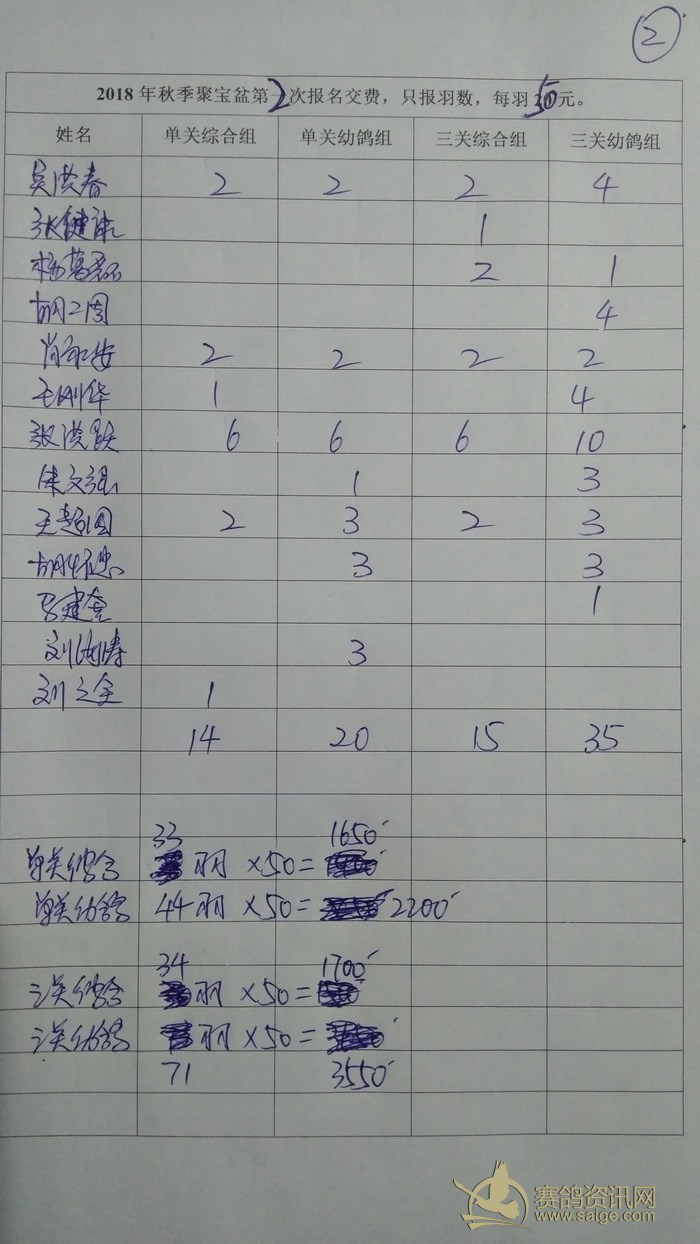 2
2018 年秋季聚宝盆第2次报名交费，只报羽数，每羽50元。
姓名 单关综合组 单关幼鸽组 三关综合组 三关幼鸽组
吴洪春 2 2 2 4
张健康 1
杨万君 2 1
胡二周 4
肖永安 2 2 2 2
王刚华 1 4
张洪跃 6 6 6 10
文强 1 3
王超国 2 3 2 3
胡怀忠 3 3
马建奎 1
刘海涛 3
刘之全 1
14 20 15 35
33 1650
单关综合 羽 ×50=
单关幼鸽 44羽 ×50= 2200
34 1700
三关综合 羽 ×50=
三关幼鸽 羽 ×50=
71 3550
赛鸽资讯网
www.saige.com